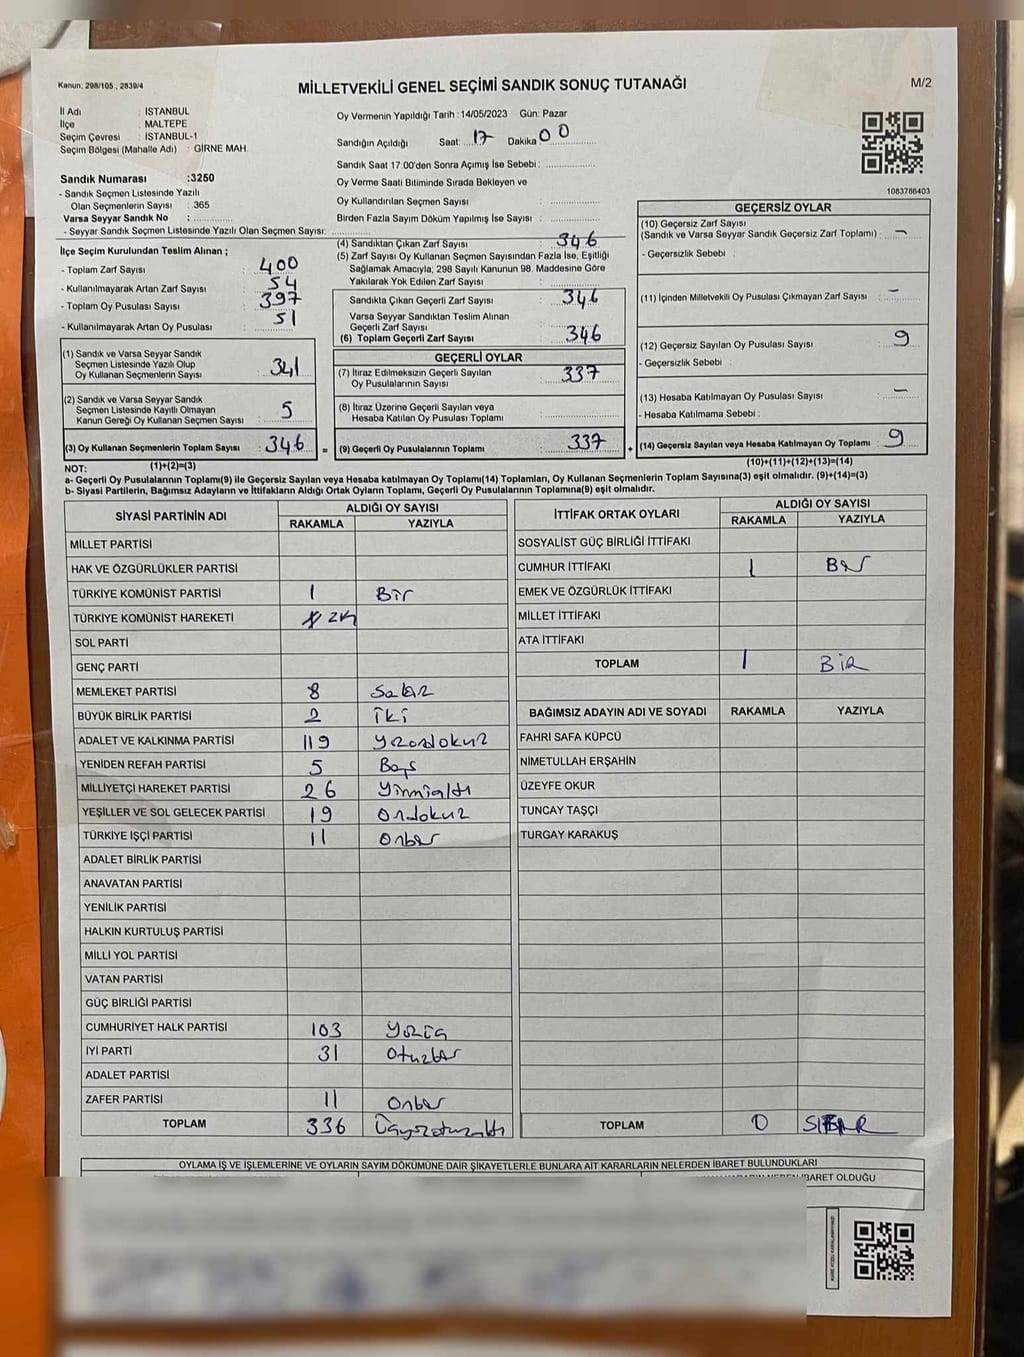 Kanun: 298/105 , 2839/4
MİLLETVEKİLİ GENEL SEÇİMİ SANDIK SONUÇ TUTANAĞI
M/2
İl Adı : İSTANBUL
İlçe : MALTEPE
Seçim Çevresi : İSTANBUL-1
Seçim Bölgesi (Mahalle Adı) : GİRNE MAH.
Oy Vermenin Yapıldığı Tarih :14/05/2023 Gün: Pazar
Sandığın Açıldığı Saat: 17 Dakika 00
Sandık Saat 17.00'den Sonra Açımış İse Sebebi :
Oy Verme Saati Bitiminde Sırada Bekleyen ve
Oy Kullandırılan Seçmen Sayısı :
Birden Fazla Sayım Döküm Yapılmış İse Sayısı :
1083786403
Sandık Numarası :3250
- Sandık Seçmen Listesinde Yazılı
Olan Seçmenlerin Sayısı : 365
Varsa Seyyar Sandık No :
- Seyyar Sandık Seçmen Listesinde Yazılı Olan Seçmen Sayısı:
İlçe Seçim Kurulundan Teslim Alınan ;
- Toplam Zarf Sayısı : 400
- Kullanılmayarak Artan Zarf Sayısı : 54
- Toplam Oy Pusulası Sayısı : 397
- Kullanılmayarak Artan Oy Pusulası : 51
(1) Sandık ve Varsa Seyyar Sandık
Seçmen Listesinde Yazılı Olup
Oy Kullanan Seçmenlerin Sayısı : 341
(2) Sandık ve Varsa Seyyar Sandık
Seçmen Listesinde Kayıtlı Olmayan
Kanun Gereği Oy Kullanan Seçmen Sayısı : 5
(3) Oy Kullanan Seçmenlerin Toplam Sayısı : 346
(1)+(2)=(3)
(4) Sandıktan Çıkan Zarf Sayısı : 346
(5) Zarf Sayısı Oy Kullanan Seçmen Sayısından Fazla İse, Eşitliği
Sağlamak Amacıyla; 298 Sayılı Kanunun 98. Maddesine Göre
Yakılarak Yok Edilen Zarf Sayısı :
Sandıkta Çıkan Geçerli Zarf Sayısı : 346
Varsa Seyyar Sandıktan Teslim Alınan
Geçerli Zarf Sayısı :
(6) Toplam Geçerli Zarf Sayısı : 346
GEÇERLİ OYLAR
(7) İtiraz Edilmeksizin Geçerli Sayılan
Oy Pusulalarının Sayısı : 337
(8) İtiraz Üzerine Geçerli Sayılan veya
Hesaba Katılan Oy Pusulası Toplamı :
= (9) Geçerli Oy Pusulalarının Toplamı : 337 +
GEÇERSİZ OYLAR
(10) Geçersiz Zarf Sayısı
(Sandık ve Varsa Seyyar Sandık Geçersiz Zarf Toplamı) : -
- Geçersizlik Sebebi :
(11) İçinden Milletvekili Oy Pusulası Çıkmayan Zarf Sayısı : -
(12) Geçersiz Sayılan Oy Pusulası Sayısı : 9
- Geçersizlik Sebebi :
(13) Hesaba Katılmayan Oy Pusulası Sayısı : -
- Hesaba Katılmama Sebebi :
(14) Geçersiz Sayılan veya Hesaba Katılmayan Oy Toplamı : 9
(10)+(11)+(12)+(13)=(14)
NOT:
a- Geçerli Oy Pusulalarının Toplamı(9) ile Geçersiz Sayılan veya Hesaba katılmayan Oy Toplamı(14) Toplamları, Oy Kullanan Seçmenlerin Toplam Sayısına(3) eşit olmalıdır. (9)+(14)=(3)
b- Siyasi Partilerin, Bağımsız Adayların ve İttifakların Aldığı Ortak Oyların Toplamı, Geçerli Oy Pusulalarının Toplamına(9) eşit olmalıdır.
SİYASİ PARTİNİN ADI
ALDIĞI OY SAYISI
RAKAMLA YAZIYLA
MİLLET PARTİSİ
HAK VE ÖZGÜRLÜKLER PARTİSİ
TÜRKİYE KOMÜNİST PARTİSİ 1 Bir
TÜRKİYE KOMÜNİST HAREKETİ
SOL PARTİ
GENÇ PARTİ
MEMLEKET PARTİSİ 8 Sekiz
BÜYÜK BİRLİK PARTİSİ 2 İki
ADALET VE KALKINMA PARTİSİ 119 Yüzondokuz
YENİDEN REFAH PARTİSİ 5 Beş
MİLLİYETÇİ HAREKET PARTİSİ 26 Yirmialtı
YEŞİLLER VE SOL GELECEK PARTİSİ 19 Ondokuz
TÜRKİYE İŞÇİ PARTİSİ 11 Onbir
ADALET BİRLİK PARTİSİ
ANAVATAN PARTİSİ
YENİLİK PARTİSİ
HALKIN KURTULUŞ PARTİSİ
MİLLİ YOL PARTİSİ
VATAN PARTİSİ
GÜÇ BİRLİĞİ PARTİSİ
CUMHURİYET HALK PARTİSİ 103 Yüzüç
İYİ PARTİ 31 Otuzbir
ADALET PARTİSİ
ZAFER PARTİSİ 11 Onbir
TOPLAM 336 Üçyüzotuzaltı
İTTİFAK ORTAK OYLARI
ALDIĞI OY SAYISI
RAKAMLA YAZIYLA
SOSYALİST GÜÇ BİRLİĞİ İTTİFAKI
CUMHUR İTTİFAKI 1 Bir
EMEK VE ÖZGÜRLÜK İTTİFAKI
MİLLET İTTİFAKI
ATA İTTİFAKI
TOPLAM 1 BİR
BAĞIMSIZ ADAYIN ADI VE SOYADI RAKAMLA YAZIYLA
FAHRİ SAFA KÜPCÜ
NİMETULLAH ERŞAHİN
ÜZEYFE OKUR
TUNCAY TAŞÇI
TURGAY KARAKUŞ
TOPLAM 0 SIFIR
OYLAMA İŞ VE İŞLEMLERİNE VE OYLARIN SAYIM DÖKÜMÜNE DAİR ŞİKAYETLERLE BUNLARA AİT KARARLARIN NELERDEN İBARET BULUNDUKLARI
İBARET OLDUĞU